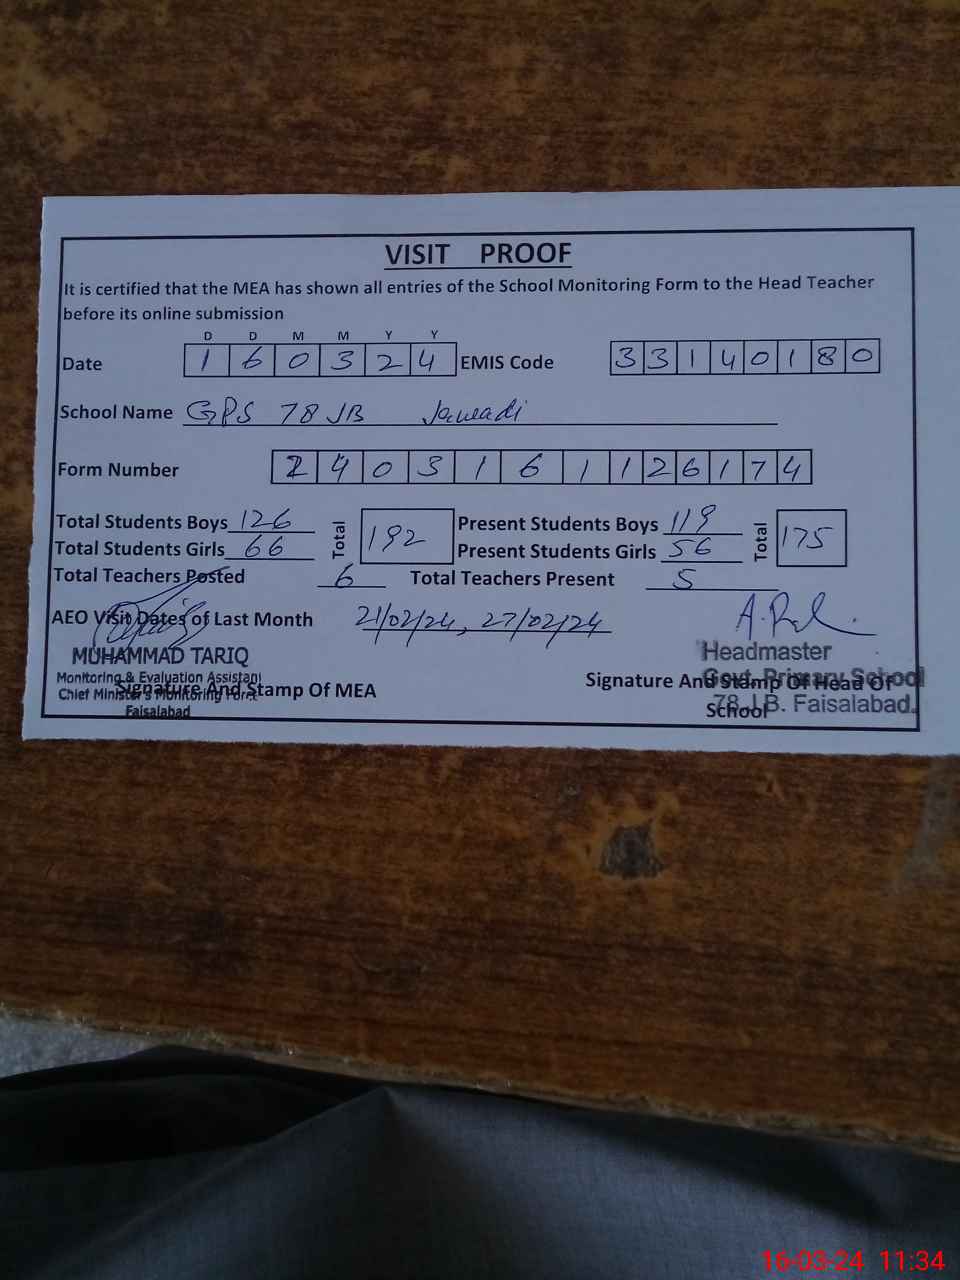 VISIT PROOF
It is certified that the MEA has shown all entries of the School Monitoring Form to the Head Teacher
before its online submission
D D M M Y Y
Date 1 6 0 3 2 4 EMIS Code 3 3 1 4 0 1 8 0
School Name GPS 78 JB
Form Number 2 4 0 3 1 6 1 1 2 6 1 7 4
Total Students Boys 126 Total 192 Present Students Boys 119 Total 175
Total Students Girls 66 Present Students Girls 56
Total Teachers Posted 6 Total Teachers Present 5
AEO Visit Dates of Last Month 21/02/24, 27/02/24
MUHAMMAD TARIQ
Monitoring & Evaluation Assistant
Chief Minister's Monitoring Force
Faisalabad
Signature And Stamp Of MEA
Headmaster
Govt. Primary School
78 J.B. Faisalabad.
Signature And Stamp Of Head Of
School
16-03-24 11:34